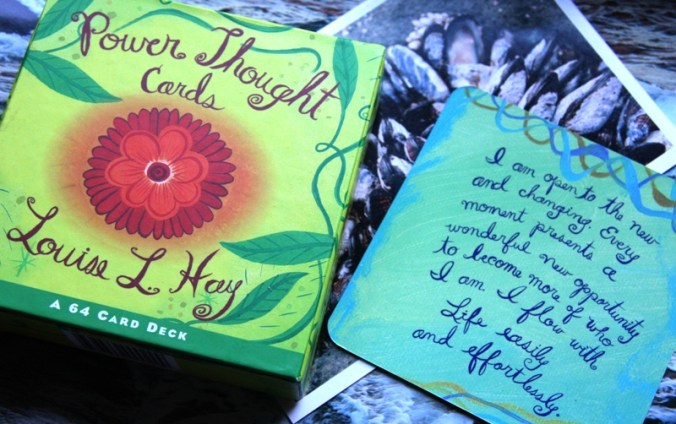 Power Thought
Cards
Louise L. Hay
A 64 CARD DECK
I am open to the new
and changing. Every
moment presents a
wonderful new opportunity
to become more of who
I am. I flow with
Life easily
and effortlessly.